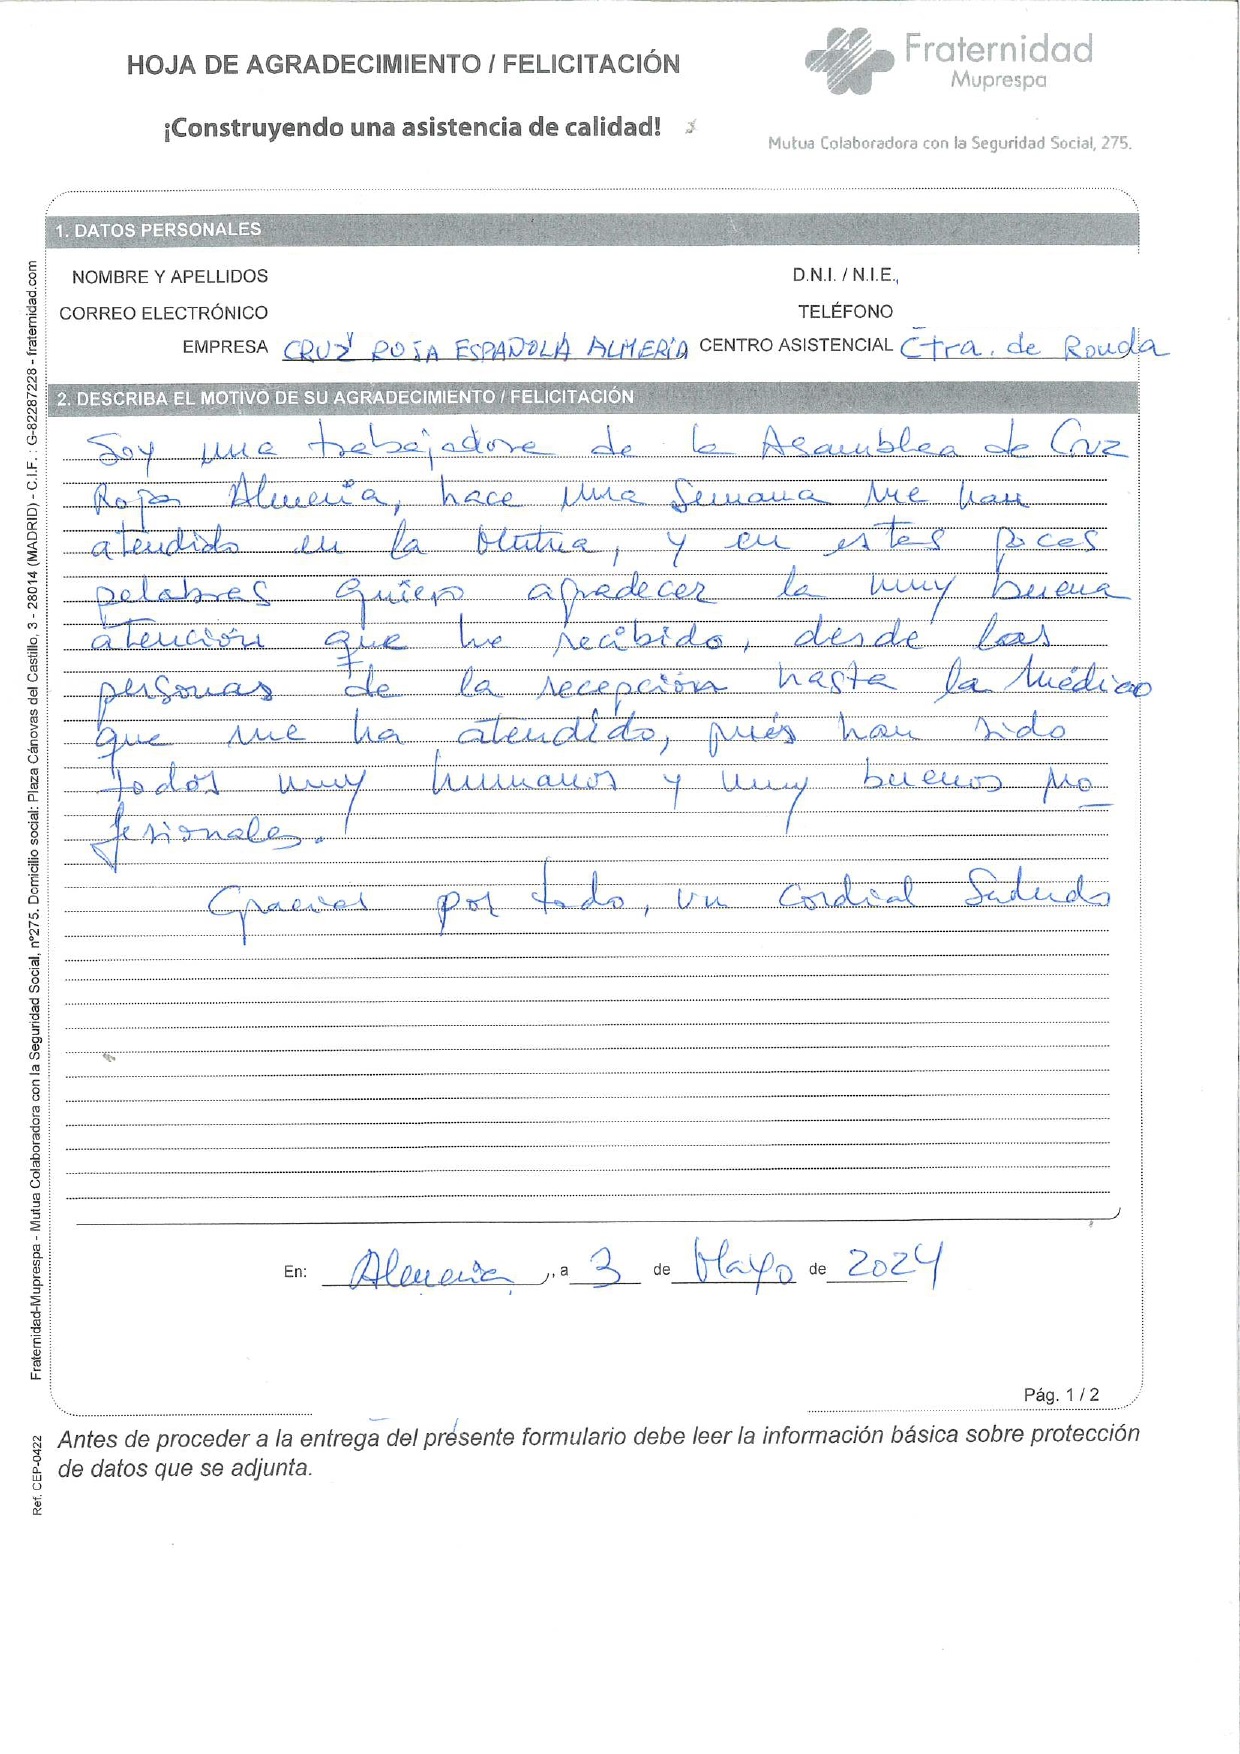 HOJA DE AGRADECIMIENTO / FELICITACIÓN
¡Construyendo una asistencia de calidad!
Fraternidad
Muprespa
Mutua Colaboradora con la Seguridad Social, 275.
1. DATOS PERSONALES
NOMBRE Y APELLIDOS D.N.I. / N.I.E.,
CORREO ELECTRÓNICO TELÉFONO
EMPRESA CRUZ ROJA ESPAÑOLA ALMERÍA CENTRO ASISTENCIAL Ctra. de Ronda
2. DESCRIBA EL MOTIVO DE SU AGRADECIMIENTO / FELICITACIÓN
Soy una trabajadora de la Asamblea de Cruz
Roja Almería, hace una semana me han
atendido en la Mutua, y en estas pocas
palabras quiero agradecer la muy buena
atención que he recibido, desde las
personas de la recepción hasta la médico
que me ha atendido, pués han sido
todos muy humanos y muy buenos pro
fesionales.
Gracias por todo, un cordial Saludo
En: Almería, a 3 de Mayo de 2024
Pág. 1 / 2
Antes de proceder a la entrega del presente formulario debe leer la información básica sobre protección
de datos que se adjunta.
Fraternidad-Muprespa - Mutua Colaboradora con la Seguridad Social, nº275. Domicilio social: Plaza Cánovas del Castillo, 3 - 28014 (MADRID) - C.I.F. : G-82287228 - fraternidad.com
Ref. CEP-0422